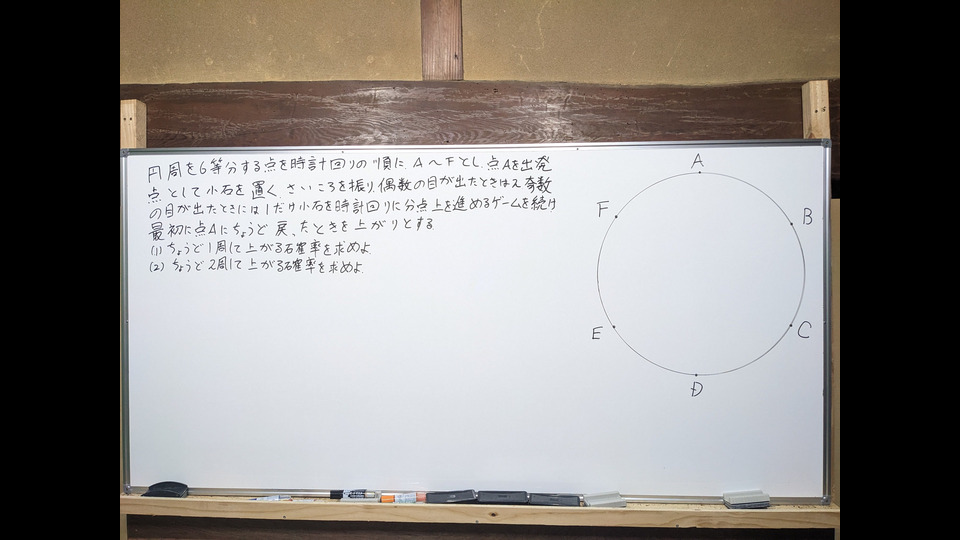 円周を6等分する点を時計回りの順に A～Fとし.点Aを出発
点として小石を置く.さいころを振り,偶数の目が出たときは2 奇数
の目が出たときには1だけ小石を時計回りに分点上を進めるゲームを続け
最初に点Aにちょうど戻ったときを上がりとする.
(1) ちょうど1周して上がる確率を求めよ.
(2) ちょうど2周して上がる確率を求めよ.
A
B
F
C
E
D